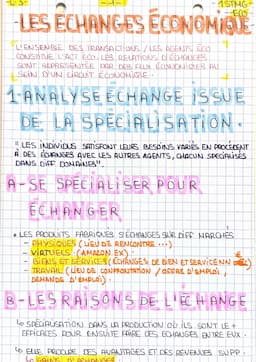 L3
1
1STMG
ECO
-LES ÉCHANGES ÉCONOMIQUE
L'ENSEMBLE DES TRANSACTIONS / LES AGENTS ECO
CONSTITUE L'ACT ECO. LES RELATIONS D'ÉCHANGES
SONT REPRÉSENTÉE PAR DES FLUX ÉCONOMIQUES AU
SEIN D'UN CIRCUIT ÉCONOMIQUE.
1-ANALYSE ÉCHANGE ISSUE
DE LA SPÉCIALISATION.
" LES INDIVIDUS SATISFONT LEURS BESOINS VARIÉS EN PROCÉDANT
À DES ÉCHANGES AVEC LES AUTRES AGENTS, CHACUN SPÉCIALISÉS
DANS DIFF DOMAINES".
A-SE SPÉCIALISER POUR
ÉCHANGER
• LES PRODUITS FABRIQUÉS S'ÉCHANGES SUR DIFF MARCHÉS
- PHYSIQUES (LIEU DE RENCONTRE ...)
- VIRTUELS (AMAZON EX)
- BIENS ET SERVICES (ÉCHANGES DE BIEN ET SERVICE N
- TRAVAIL (LIEU DE CONFRONTATION / OFFRE D'EMPLOI,
DEMANDE D'EMPLOI).
B-LES RAISONS DE L'ÉCHANGE
↳ SPÉCIALISATION DANS LA PRODUCTION OÙ ILS SONT LE +
EFFICACES POUR ENSUITE FAIRE DES ÉCHANGES ENTRE EUX.
↳ ELLE PRODUIT DES AVANTAGES ET DES REVENUS SUPP